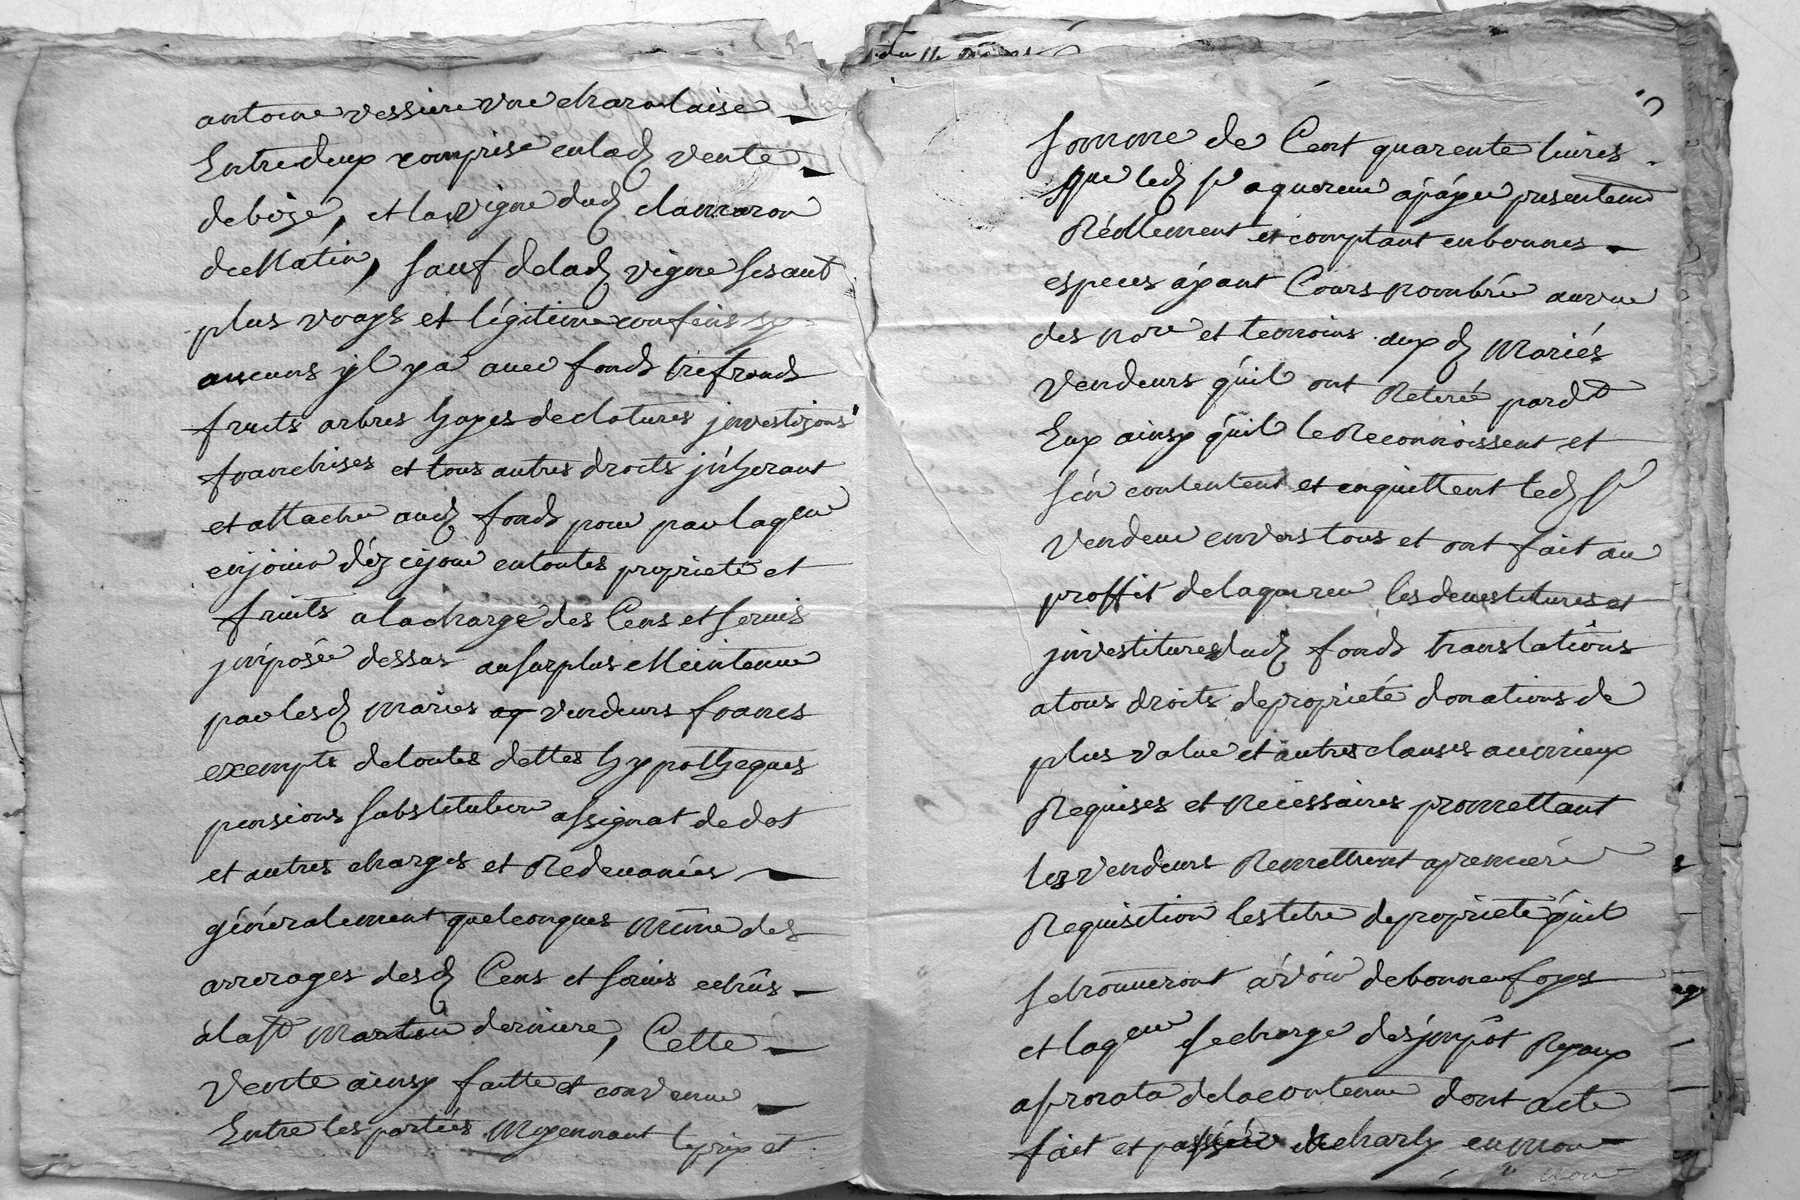 du
antoine vessiere une charoulaise
Entredeux comprise en lad vente
debize, et la vigne dud clamaron
de Matin, sauf delad vigne ses aut
plus vrays et légitime confins sy
aucuns yl ya avec fonds trefronds
fruits arbres hayes declotures jnvestizons
franchises et tous autres droits jnherant
et attache aud fonds pour par laqeur
enjouir déz cejour entoutes proprieté et
fruits alacharge des Cens et servis
jmposée dessus ausurplus Meintenue
par lesd mariés aq vendeurs francs
exempts detoutes dettes hypotheques
pensions substitution assignat dedot
et autres charges et Redevances
généralement quelconques même des
arrerages desd Cens et servis echûs
àla st Martin derniere, Cette
Vente ainsy faitte et convenue
Entre les parties Moyennant leprix et
somme de Cent quarente livres
que led sr aquereur apayée presentemt
Réellement et comptant enbonnes
especes ayant Cours nombré auvue
des nore et temoins aux d Mariés
Vendeurs qu'il ont Retirée pard
Eux ainsy qu'il le Reconnoissent et
s'en contentent et enquittent led sr
Vendeur envers tous et ont fait au
proffit delaquereur les devestitures et
jnvestitures dud fonds translations
atous droits de proprieté donations de
plus value et autres clauses aumieux
Requises et Necessaires promettant
les vendeurs Remettront apremiere
Requisition les titre deproprieté qu'il
setrouveront avoir de bonne foye
et laqeur secharge des jmpôt Royaux
aprorata delacontenue dont acte
fait et passé charly en mon